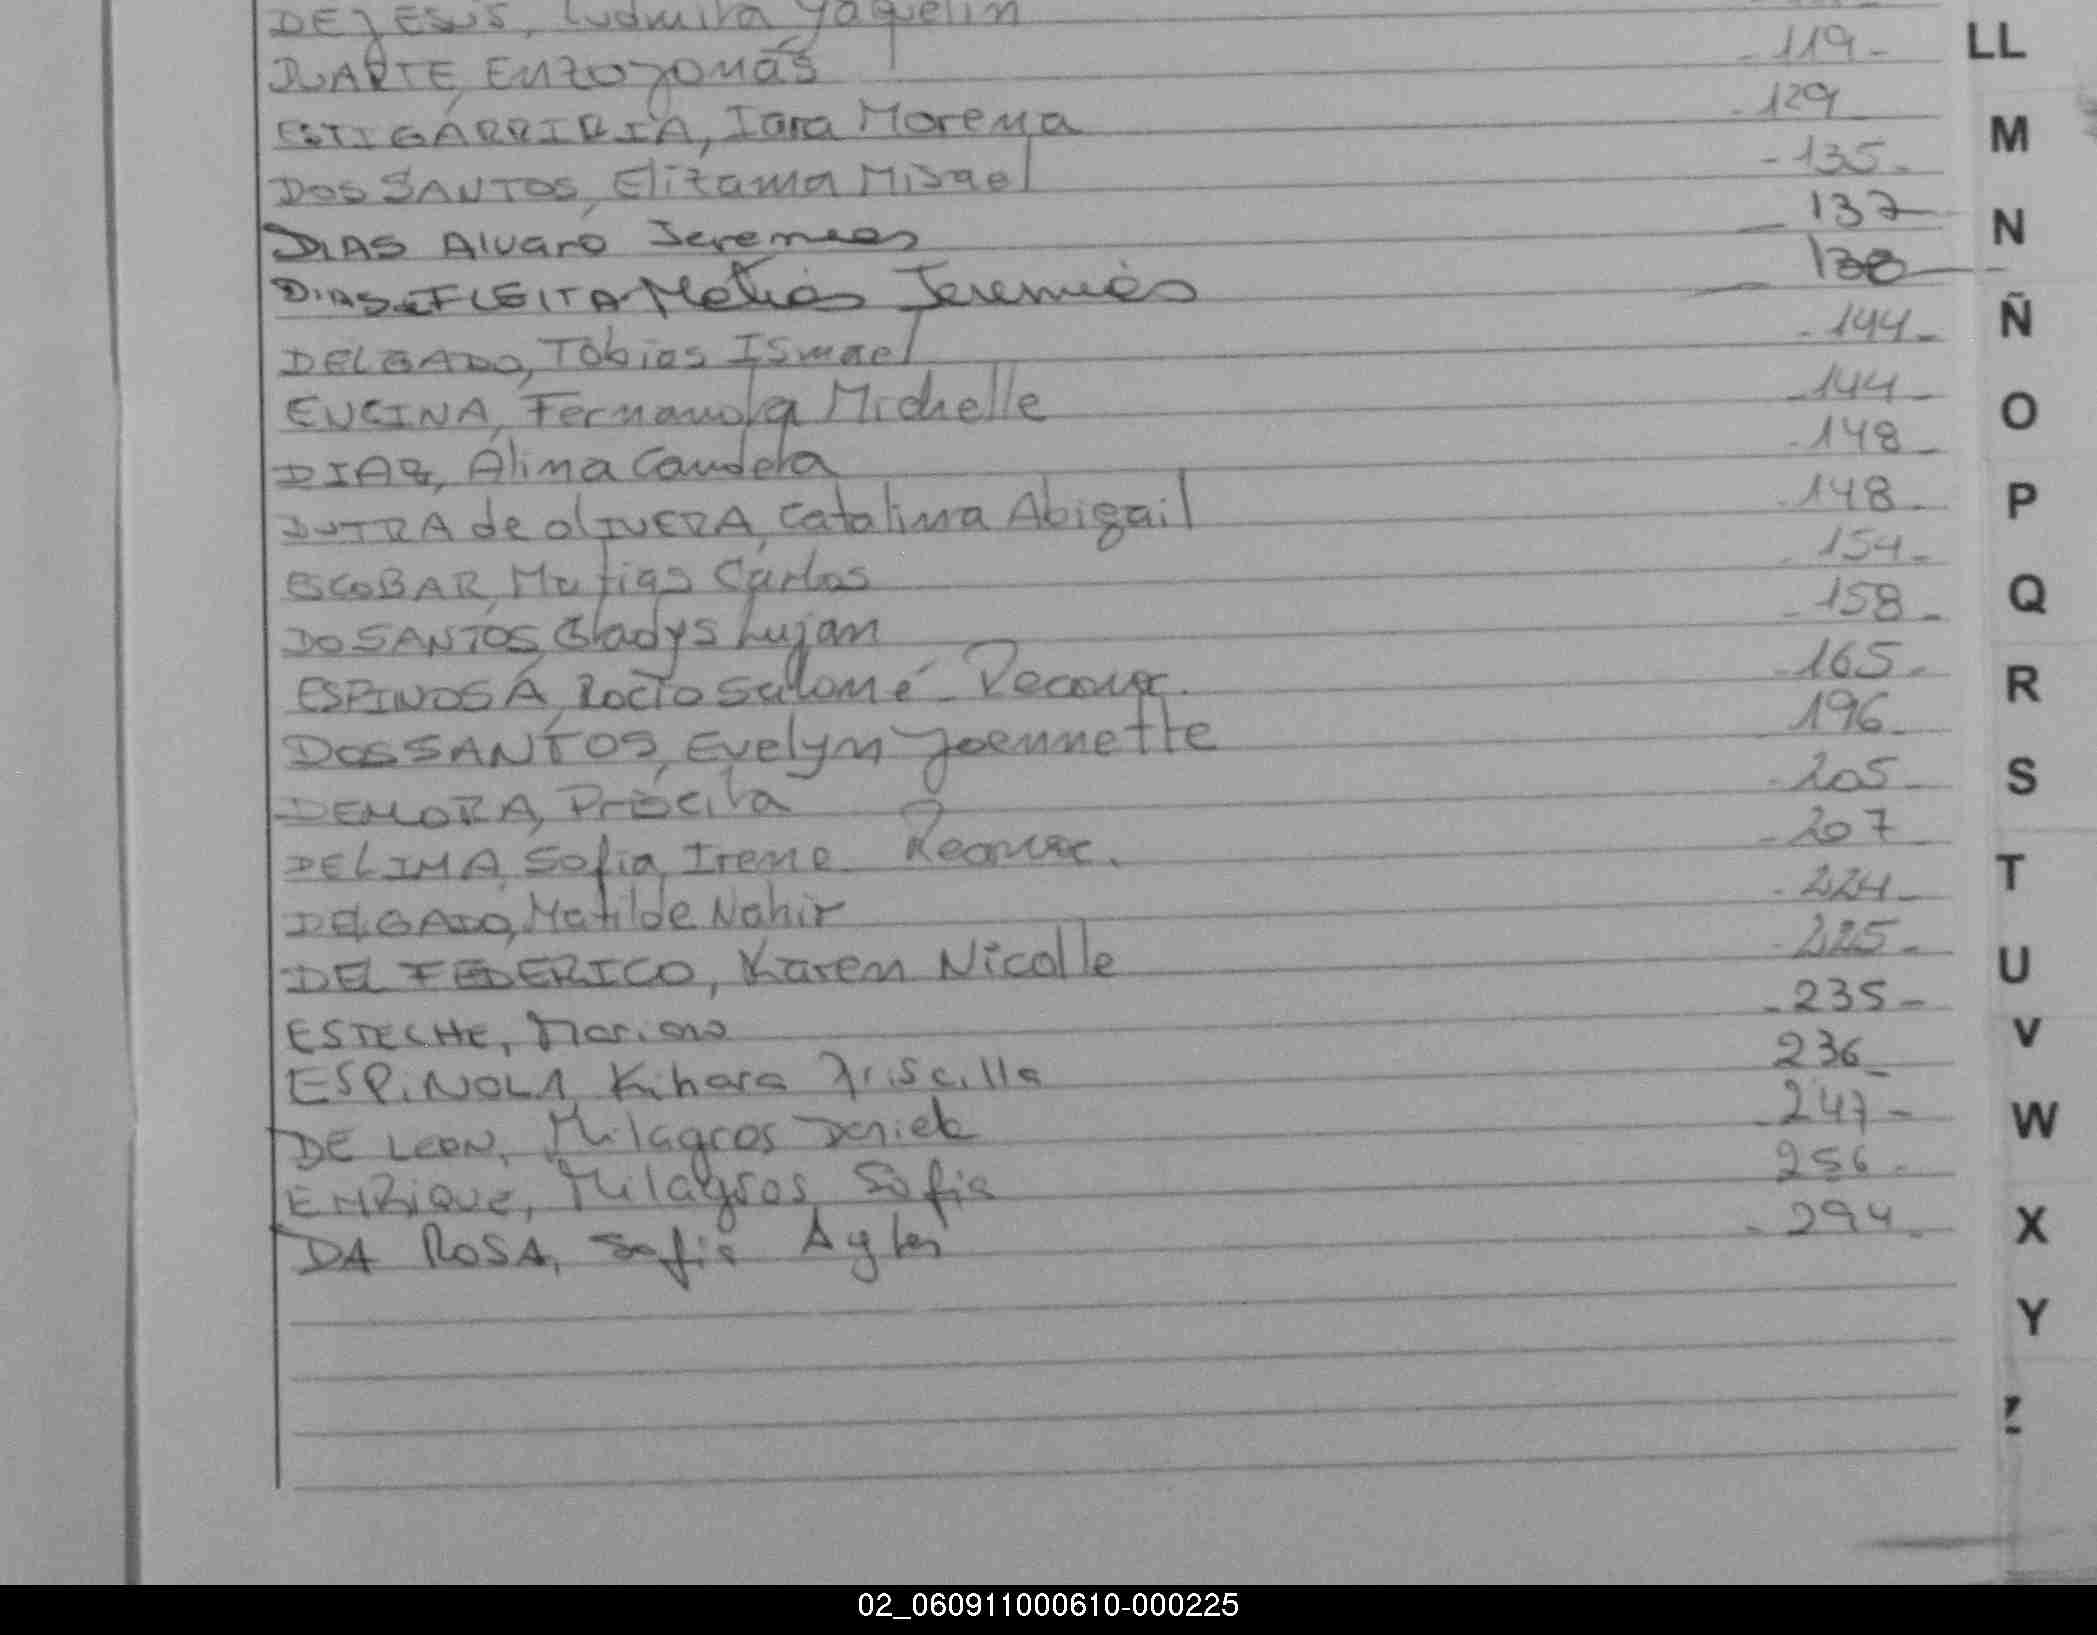 DEJESUS, Ludmila Yaquelin
DUARTE, Enzo Jonás 119
ESTIGARRIBIA, Iara Morena 129
DOS SANTOS, Elizama Misael 135
DIAS Alvaro Jeremias 137
DIAS FLEITA Matias Jeremias 138
DELGADO, Tobias Ismael 144
ENCINA, Fernanda Michelle 144
DIAZ, Alina Candela 148
DUTRA de OLIVERA, Catalina Abigail 148
ESCOBAR, Matias Carlos 154
DO SANTOS, Gladys Lujan 158
ESPINOSA, Rocio Salomé - Reconoc. 165
DOS SANTOS, Evelyn Joennette 196
DEMORA, Priscila 205
DELIMA, Sofia Irene Reconoc. 207
DELGADO, Matilde Nahir 224
DEL FEDERICO, Karen Nicolle 225
ESTECHE, Mariano 235
ESPINOLA Kihara Priscilla 236
DE LEON, Milagros Daniela 247
ENRIQUE, Milagros Sofia 256
DA ROSA, Sofia 294
LL
M
N
Ñ
O
P
Q
R
S
T
U
V
W
X
Y
Z
02_060911000610-000225